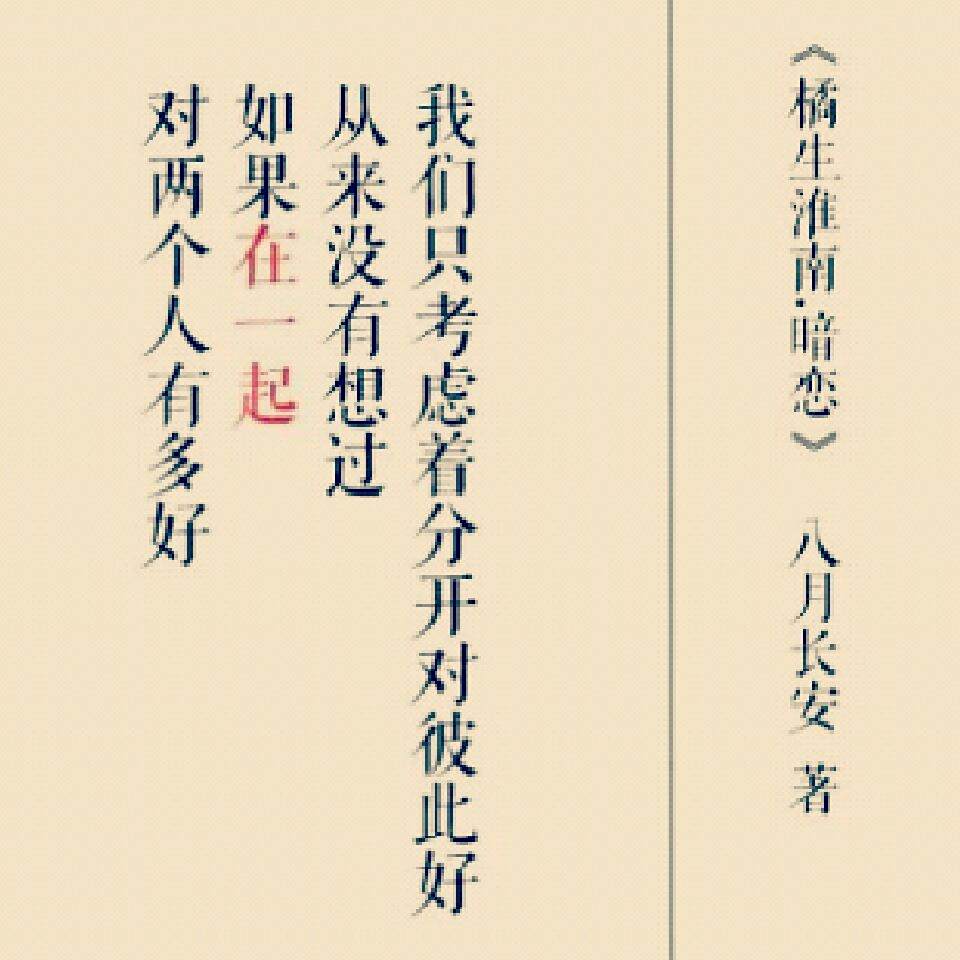 《橘生淮南·暗恋》 八月长安 著
我们只考虑着分开对彼此好
从来没有想过
如果在一起
对两个人有多好